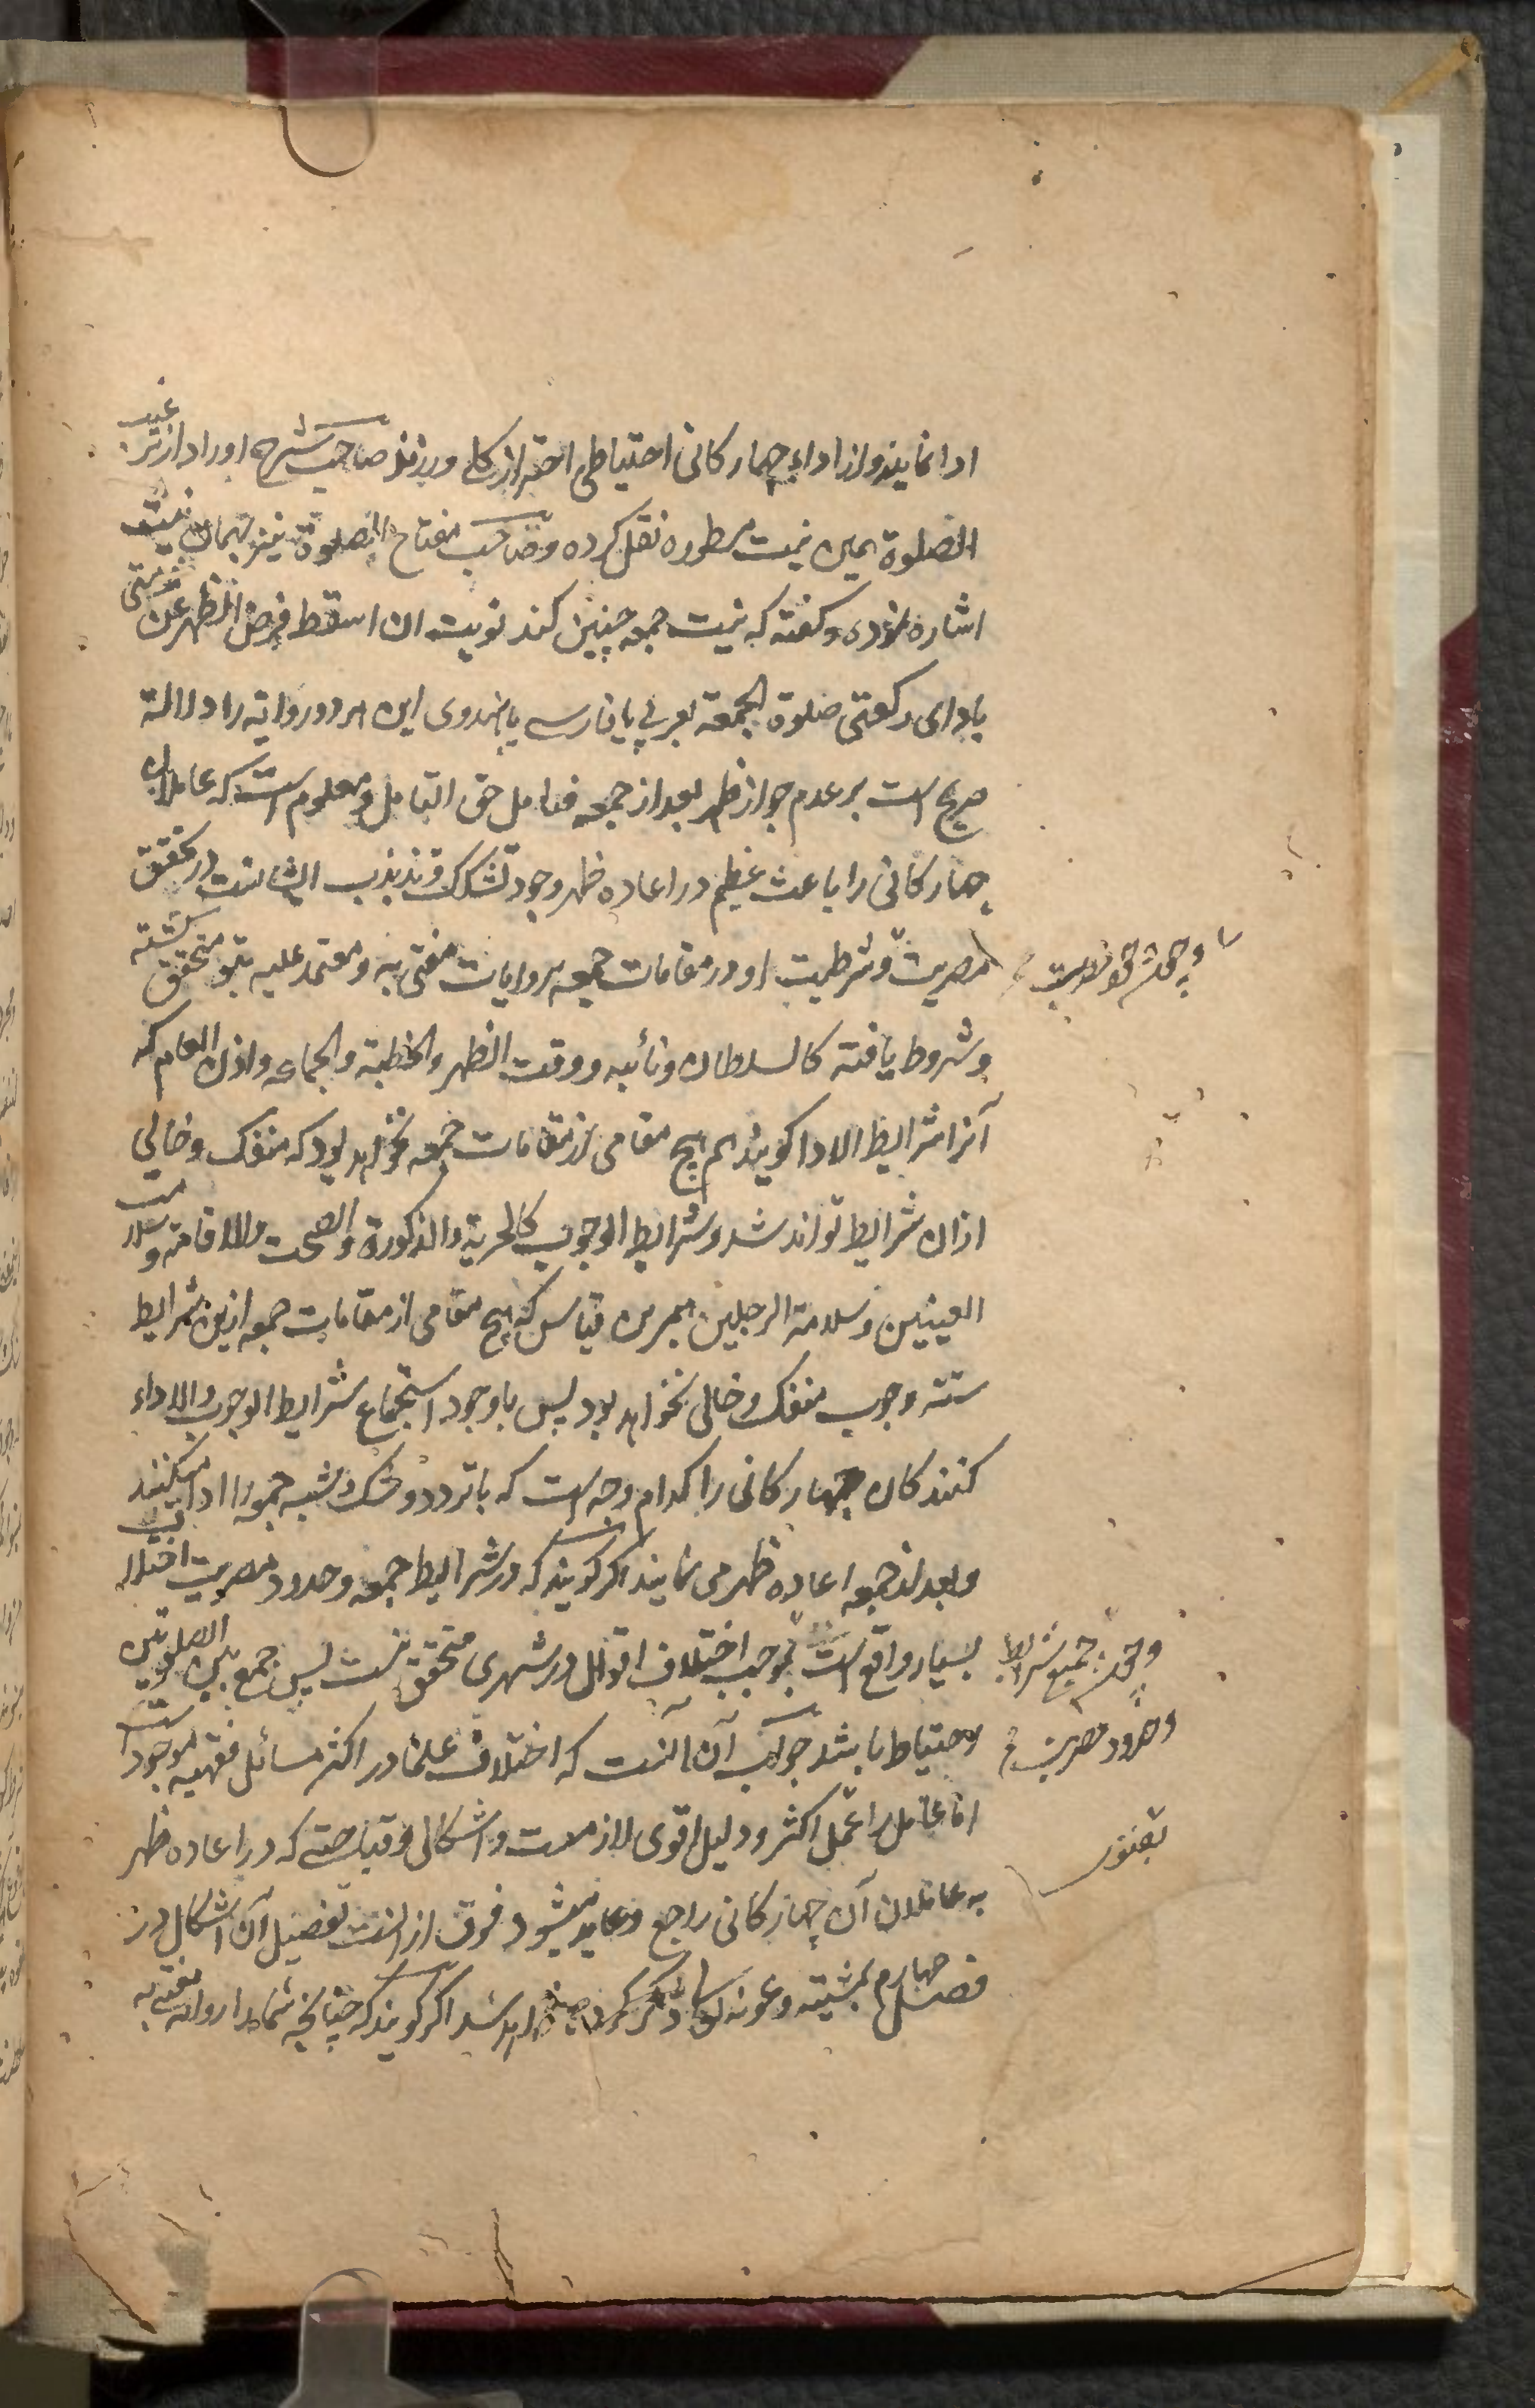 ادا نمایند و از اداء چهارکانی احتیاطی احتراز کلی ورزند صاحب شرح اوراد از ترغیب
الصلوة همین نیت مسطوره نقل کرده و صاحب مفتاح الصلوة نیز بهمان نیت
اشاره نموده و کفته که نیت جمعه چنین کند نویت ان اسقط فرض الظهر عن ذمتی
باداى رکعتی صلوة الجمعة بعربی یا فارسے یا هندوی این هر دو روایه را دلالة
صریح است بر عدم جواز ظهر بعد از جمعه فتامل حق التامل و معلوم است که عاملان
چهارکانی را باعث عظیم در اعاده ظهر وجود تشکک و تذبذب ایشانست در تحقق
مصریت و شرطیت او در مقامات جمعه بروایات مفتی به و معتمد علیه متحقق کشته
وشروط یافته کالسلطان ونائبه ووقت الظهر والخطبة والجماعه واذن العام که
آنرا شرایط الادا کویند هم هیچ مقامی از مقامات جمعه نخواهد بود که منفک وخالی
ازان شرایط تواند شد و شرایط الوجوب کالحریة والذکورة والصحت والاقامة وسلامت
العینین وسلامة الرجلین همبرین قیاس که هیچ مقامی از مقامات جمعه ازین شرایط
ستة وجوب منفک وخالی نخواهد بود پس باوجود استجماع شرایط الوجوب والاداء
کنندکان چهارکانی را کدام وجه است که با تردد و شک وشبه جمعه را ادا میکنند
وبعد از جمعه اعاده ظهر می نمایند اکر کویند که در شرایط جمعه وحدود مصریت اختلاف
بسیار واقع است بموجب اختلاف اقوال در شهری متحقق نیست پس جمع بین الصلوتین
احتیاط باشد جواب آن آنست که اختلاف علما در اکثر مسائل فقهیه موجود است
اما عامل را عمل اکثر ودلیل اقوی لازمست و اشکالی و قباحتے که در اعاده ظهر
به عاملان آن چهارکانی راجع و عاید میشود فوق از انست تفصیل آن اشکال در
فصل چهارم بمشیته وعونه تعالی ذکر کرده خواهد شد اکر کویند که چنانچه شما را روایه مفتی به
وجمیع شرایط
وحدود مصریت